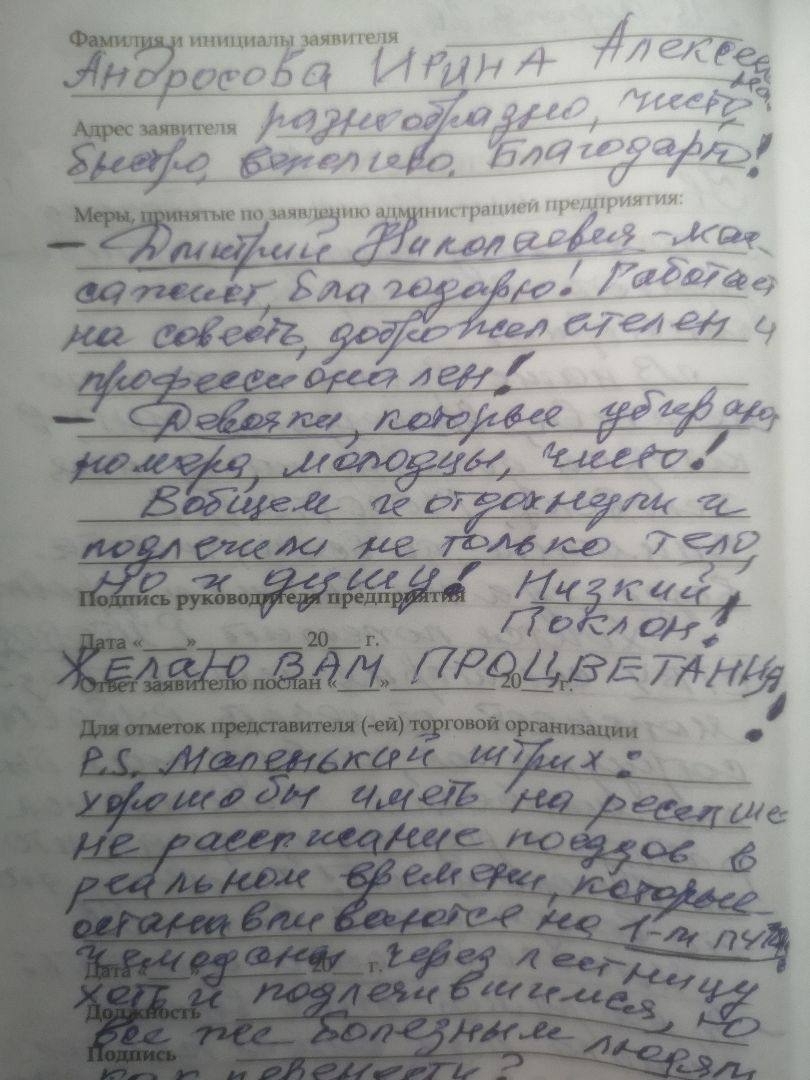 Фамилия и инициалы заявителя
Андросова ИРИНА Алексеевна.
Адрес заявителя разнообразно, чисто,
быстро, вежливо. Благодарю!
Меры, принятые по заявлению администрацией предприятия:
— Дмитрий Николаевич - мас-
сажист, благодарю! Работает
на совесть, доброжелателен и
профессионален!
— Девочки, которые убирают
номера, молодцы, чисто!
Вобщем и отдохнули и
подлечили не только тело,
но и душу! Низкий
Подпись руководителя предприятия
Поклон!
Дата «___»_________ 20___ г.
ЖЕЛАЮ ВАМ ПРОЦВЕТАНИЯ!
Ответ заявителю послан «___»_________ 20___ г.
Для отметок представителя (-ей) торговой организации
P.S. Маленький штрих:
хорошо бы иметь на ресепше
не расписание поездов в
реальном времени, которые
останавливаются на 1-м пути
чемоданы через лестницу
Дата «___»_________ 20___ г.
хоть и подлечившимся, но
Должность
все же болезным людям
Подпись
как перенести?